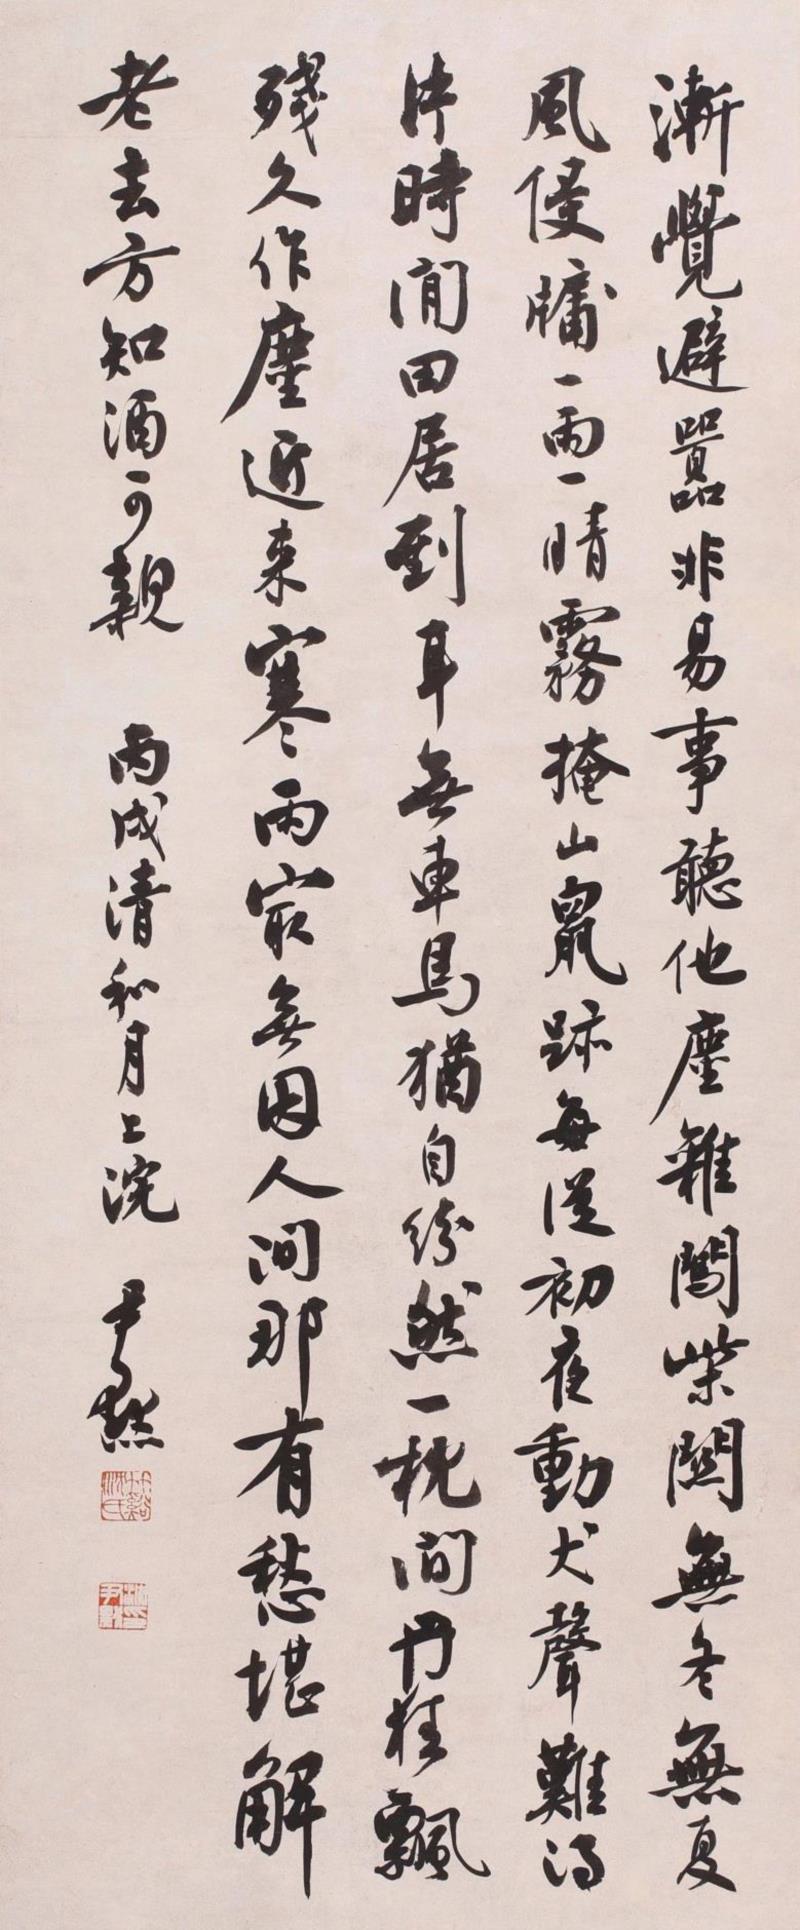 漸覺避囂非易事聽他塵雜閙柴關無冬無夏
風侵牖一雨一晴霧掩山鼠跡每從初夜動犬聲難得
片時閒田居到耳無車馬猶自紛然一枕間丹桂飄
殘久作塵近来寒雨寂無因人间那有愁堪解
老去方知酒可親
丙戌清和月上浣
尹默
竹谿沈氏